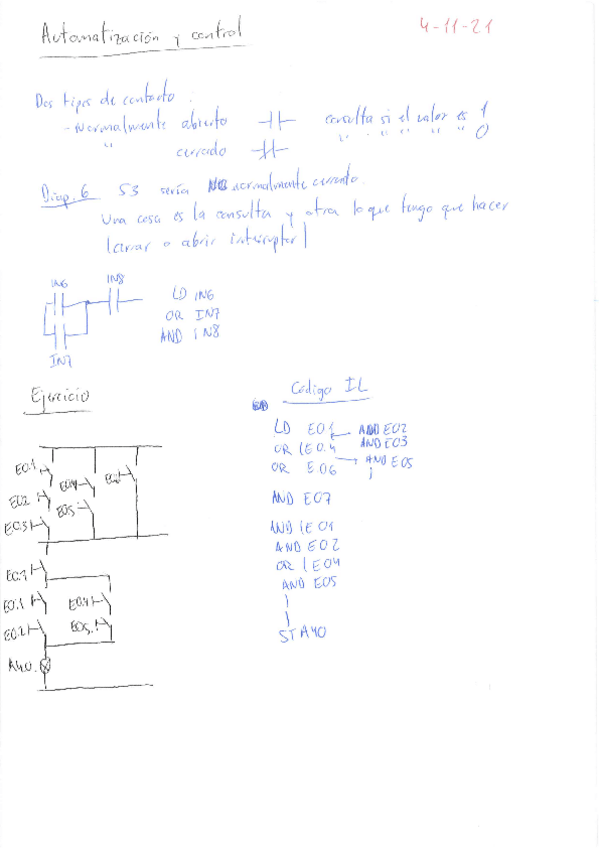 Automatización y control
4-11-21
Dos tipos de contacto:
- Normalmente abierto consulta si el valor es 1
" cerrado " " " " " 0
Diap. 6 S3 sería normalmente cerrado.
Una cosa es la consulta y otra lo que tengo que hacer
(cerrar o abrir interruptor)
IN6 IN8
IN7
LD IN6
OR IN7
AND IN8
Ejercicio
Código IL
LD E0.1 AND E02
AND E03
OR (E0.4 AND E05
)
OR E06
AND E07
AND (E01
AND E02
OR (E04
AND E05
)
)
ST A40
E0.1
E02
E0.3
E0.4
E05
E0.1
E0.2
E0.4
E05
A40